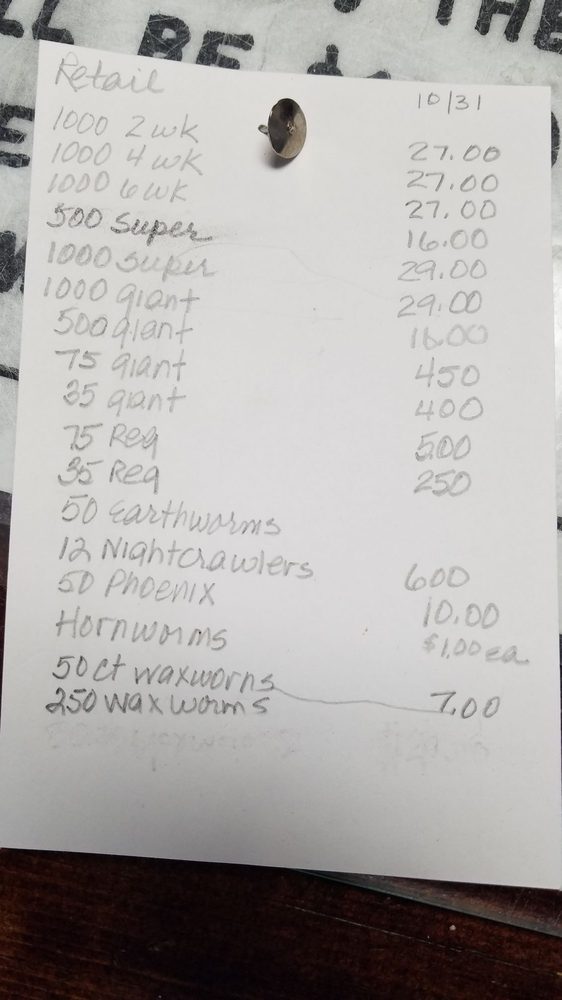 THE
LL BE $1
Retail 10/31
1000 2wk 27.00
1000 4wk 27.00
1000 6wk 27.00
500 Super 16.00
1000 super 29.00
1000 giant 29.00
500 giant 16.00
75 giant 450
35 giant 400
75 Reg 5.00
35 Reg 250
50 Earthworms
12 Nightcrawlers 600
50 Phoenix 10.00
Hornworms $1.00 ea
50ct waxworns 7.00
250 wax worms